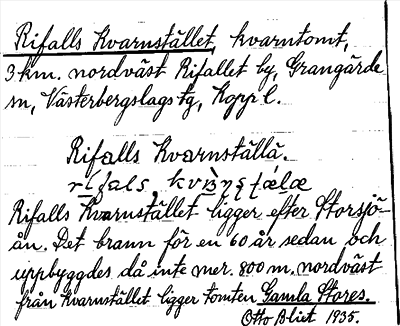 Rifalls Kvarnstället, kvarntomt,
3 km. nordväst Rifallet by, Grangärde
sn, Västerbergslags tg, Kopp l.
Rifalls Kvarnställä.
Rifalls Kvarnstället ligger efter Storsjö-
ån. Det brann för en 60 år sedan och
uppbyggdes då inte mer. 800 m. nordväst
från Kvarnstället ligger tomten Gamla Stores.
Otto Bliet 1935.